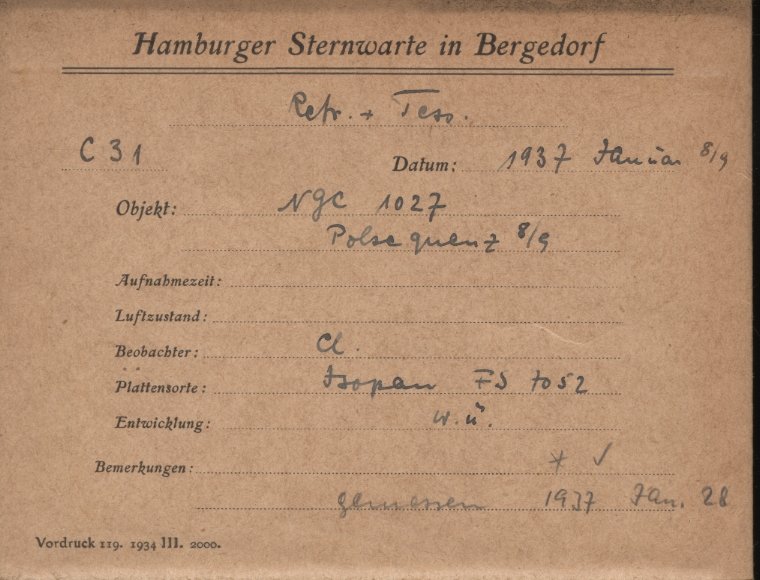 Hamburger Sternwarte in Bergedorf
Refr. + Tess.
C 31 Datum: 1937 Januar 8/9
Objekt: NGC 1027
Polsequenz 8/9
Aufnahmezeit:
Luftzustand:
Beobachter: Cl.
Plattensorte: Isopan FS 7052
Entwicklung: w. ü.
Bemerkungen: + ✓
gemessen 1937 Jan. 28
Vordruck 119. 1934 III. 2000.